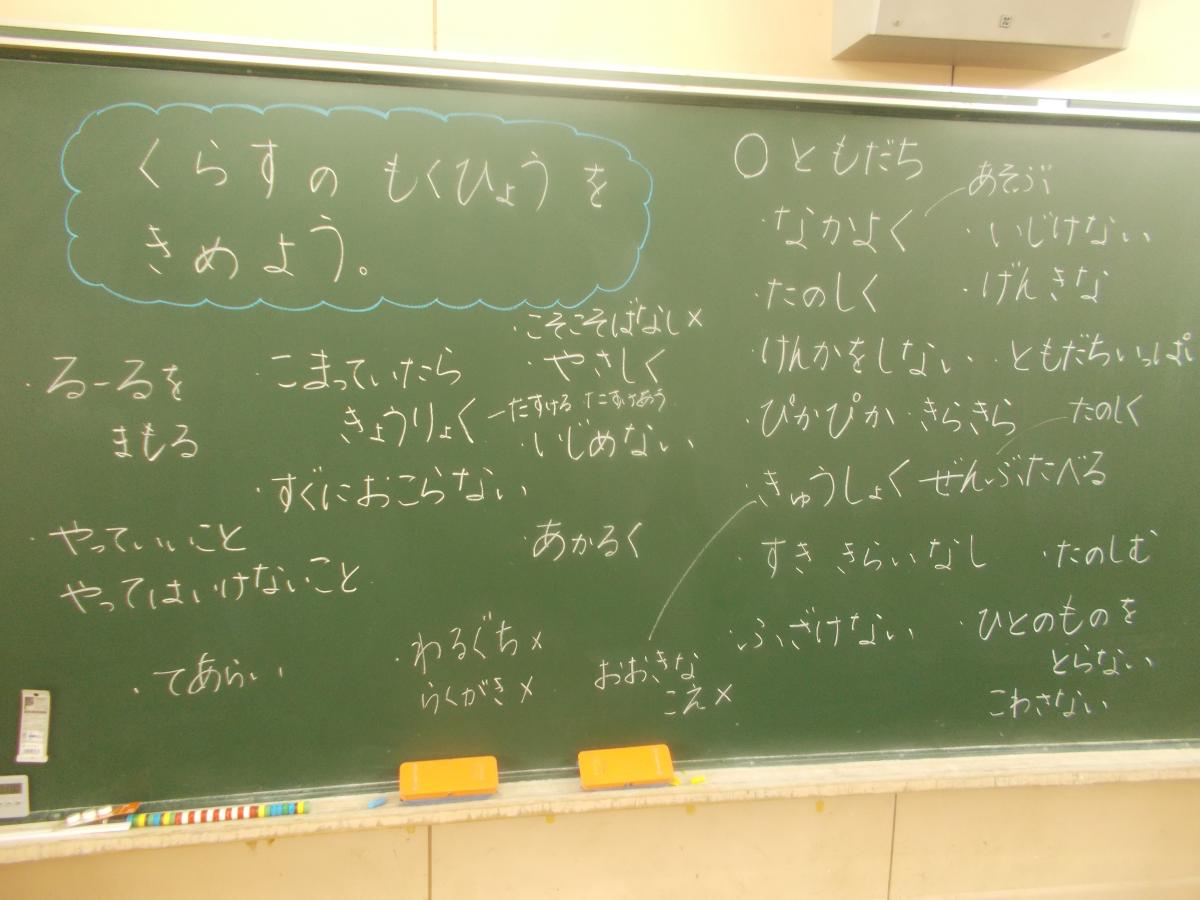 くらすの もくひょうを
きめよう。
・るーるを
まもる
・こまっていたら
きょうりょく
たすける たすけあう
・こそこそばなし×
・やさしく
・いじめない
・すぐにおこらない
・やっていいこと
やってはいけないこと
・あかるく
・てあらい
・わるぐち×
らくがき×
おおきな
こえ×
○ともだち
・なかよく
あそぶ
・いじけない
・たのしく
・げんきな
・けんかをしない
・ともだちいっぱい
・ぴかぴか・きらきら
たのしく
・きゅうしょく ぜんぶたべる
・すききらいなし
・たのしむ
・ふざけない
・ひとのものを
とらない
こわさない